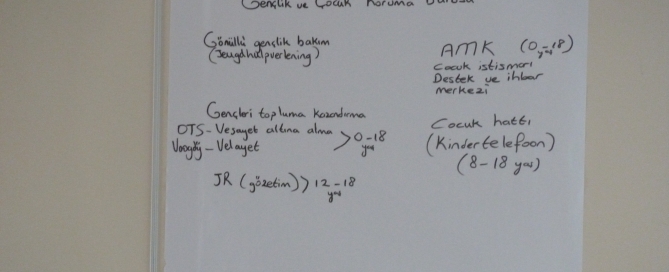 Gençlik ve Çocuk Koruma
Gönüllü gençlik bakım
(Jeugdhulpverlening)
AMK (0-18)
yaş
Cocuk istismarı
Destek ve ihbar
merkezi
Gençleri topluma kazandırma
OTS-Vesayet altına alma
Voogdij-Velayet
> 0-18
yaş
Cocuk hattı
(Kindertelefoon)
(8-18 yaş)
JR (gözetim) > 12-18
yaş